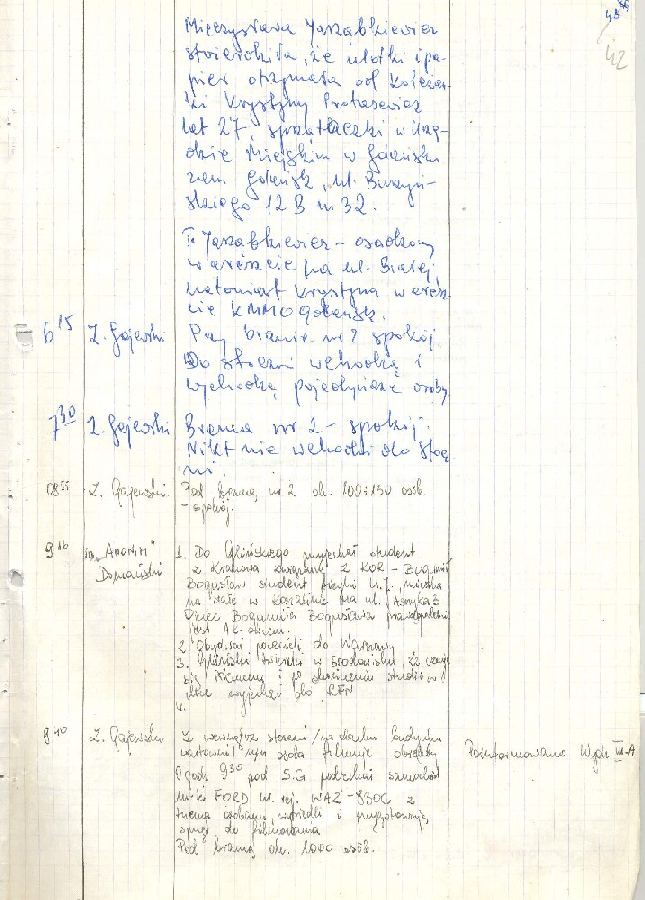 42
Mieczysława Jaszabkiewicz
stwierdziła, że ulotki i pa-
pier otrzymała od koleżan-
ki Krystyny Protasewicz
lat 27, sprzątaczki w Urzę-
dzie Miejskim w Gdańsku
zam. Gdańsk, ul.
12 B m 32.
Jaszabkiewicz – osadzony
w areszcie na ul. Białej,
natomiast Krystyna w aresz-
cie KMMO Gdańsk.
6 15 Z. Gajewski Przy bramie nr 2 spokój
Do stoczni wchodzą i
wychodzą pojedyncze osoby
7 30 Z. Gajewski Brama nr 2 – spokój.
Nikt nie wchodzi do stocz
ni.
08 55 Z. Gajewski Pod bramą nr 2 ok. 100÷150 osób
– spokój.
9 10 Domański
1. Do Glińskiego przyjechał student
z Krakowa związany z KOR –
Bogusław student fizyki U.J., mieszka
na stałe w Koszalinie na ul. Asnyka
Ojciec Bogusława prawdopodobnie
jest
2. Obydwaj polecieli do Warszawy
3. Gliński twierdzi w środowisku, że czuje
się Niemcem i po skończeniu studiów
chce wyjechać do RFN
4.
9 40 Z. Gajewski Z wewnątrz stoczni /na dachu budynku
wartowni/ osoba filmuje
O godz. 9 30 pod S.G. podjechał samochód
marki FORD nr. rej. WAZ-830C z
trzema osobami, wysiedli i przygotowują
sprzęt do filmowania
Pod bramą ok. 1000 osób.
Poinformowano Wydz III-A